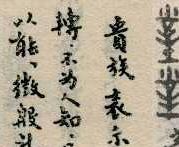 貴族表示
轉、不为人知、
以能、微服